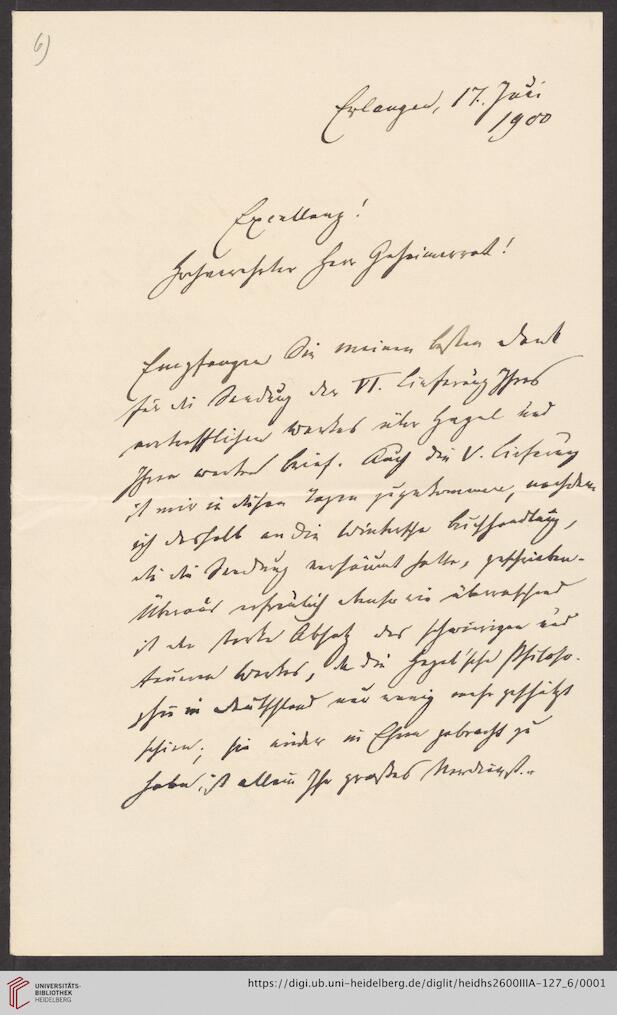 6)
Erlangen, 17. Juni
1900
Excellenz!
Hochverehrter Herr Geheimerrat!
Empfangen Sie meinen besten Dank
für die Sendung der VI. Lieferung Ihres
vortrefflichen Werkes über Hegel und
Ihren werten Brief. Auch die V. Lieferung
ist mir in diesen Tagen zugekommen, nachdem
ich deshalb an die Wintersche Buchhandlung,
die die Sendung versäumt hatte, geschrieben.
Überaus erfreulich ebenso wie überraschend
ist der starke Absatz des schwierigen und
teueren Werkes, da die Hegel'sche Philoso-
phie in Deutschland nur wenig mehr geschätzt
schien; sie wieder zu Ehren gebracht zu
haben, ist allein Ihr großes Verdienst.
UNIVERSITÄTS-
BIBLIOTHEK
HEIDELBERG
https://digi.ub.uni-heidelberg.de/diglit/heidhs2600IIIA-127_6/0001